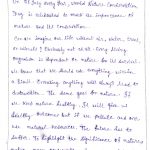 On 28 July every year, World Nature Conservation
Day is celebrated to mark the importance of
nature and its conservation.
Can we imagine our life without air, water, trees,
or animals? Obviously not while every living
organism is dependent on nature for its survival.
we know that we should use everything within
a limit. Overusing anything will always lead to
destruction. The same goes for nature. If
we keep nature healthy, It will give us
healthy outcomes but if we pollute and over
use natural resources. The future has to
suffer. To highlight the significance of nature